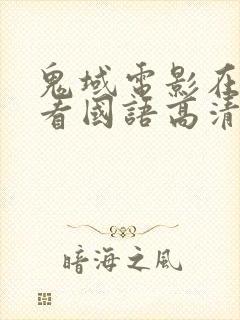 鬼域電影在
看國語高清
暗海之风